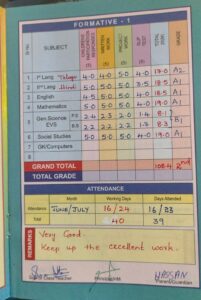 FORMATIVE - 1
Sl No. SUBJECT CHILDREN'S PARTICIPATION RESPONSES (5) WRITTEN WORK (5) PROJECT WORK (5) TEST (5) TOTAL (20) GRADE
1 Iˢᵗ Lang Telugu 4.0 4.0 5.0 5.0 18.0 A2
2 IIⁿᵈ Lang Hindi 5.0 5.0 5.0 4.0 19.0 A1
3 English 4.5 5.0 5.0 4.0
4 Mathematics 5.0 5.0 5.0 4.0 19.0 A1
5 Gen.Science P.S 2.4 2.3 2.0 1.4 8.1
EVS B.S 2.2 2.2 2.2 1.7 8.3
6 Social Studies 5.0 5.0 5.0 4.0 19.0 A1
7 GK/Computers
8
GRAND TOTAL 108.4 2nd
TOTAL GRADE
ATTENDANCE
Month Working Days Days Attended
Attendance JUNE/JULY 16/24 16/23
Total 40 39
REMARKS
Very Good.
Keep up the excellent work.
HASSAN
Class Teacher Principal/HM Parent/Guardian